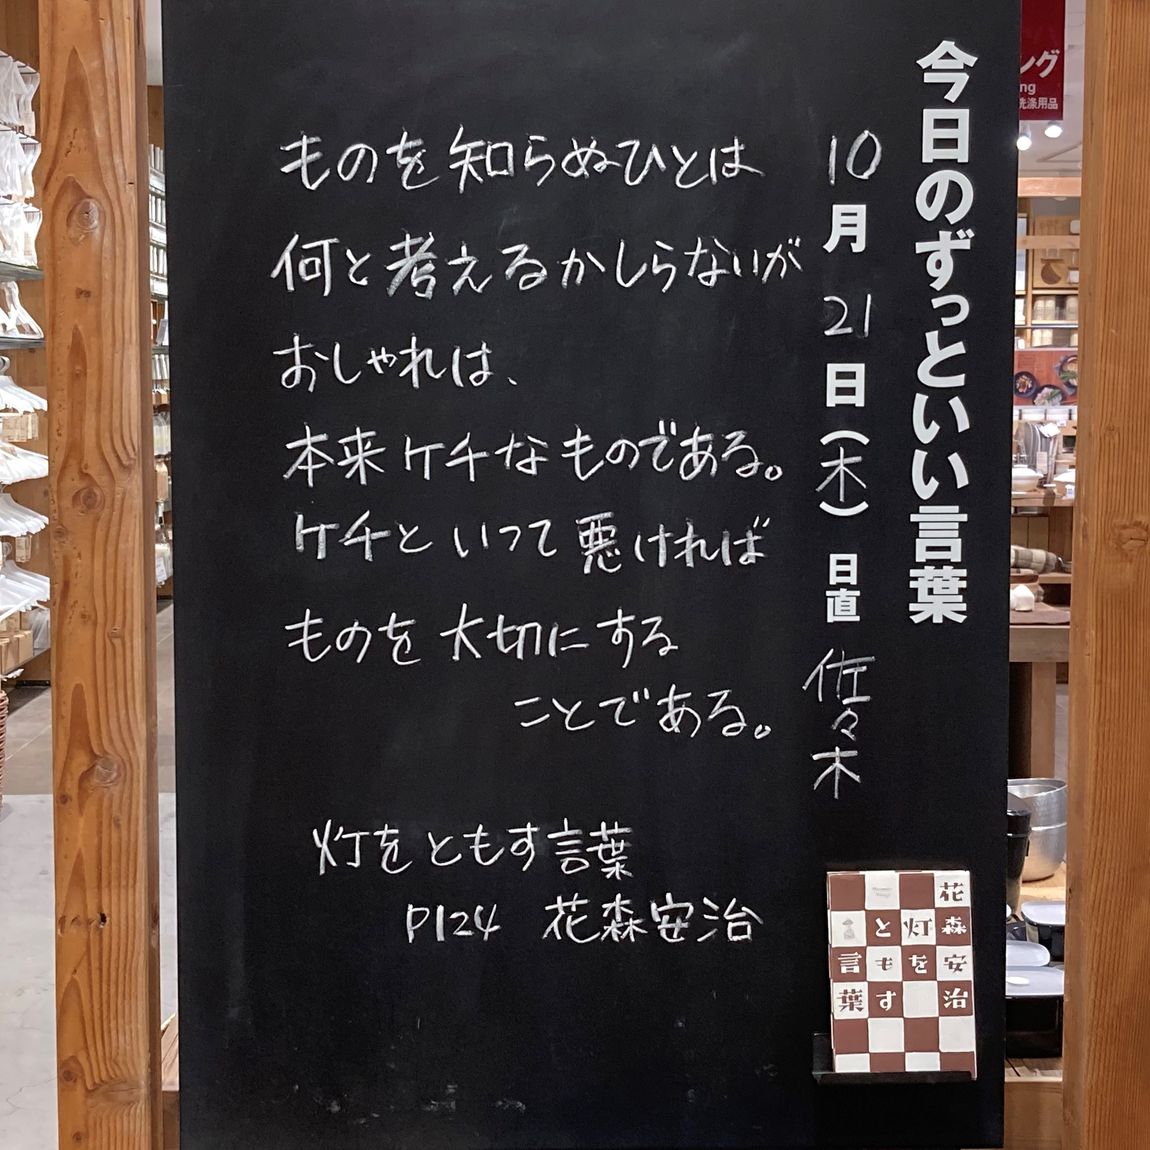 今日のずっといい言葉
10月21日(木) 日直 佐々木
ものを知らぬひとは
何と考えるかしらないが
おしゃれは、
本来ケチなものである。
ケチといって悪ければ
ものを大切にする
ことである。
灯をともす言葉
P124 花森安治
花森安治
灯を
ともす
言葉
ング
ng
洗滌用品